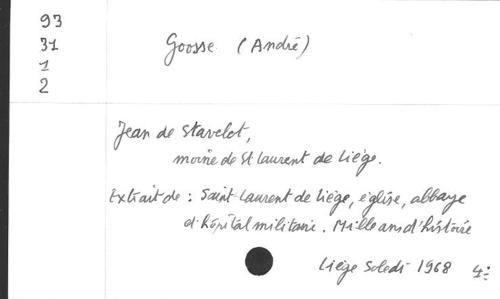 93
31
1
2
Goosse (André)
Jean de Stavelot,
moine de St Laurent de Liège.
Extrait de : Saint-Laurent de Liège, église, abbaye
et hôpital militaire. Mille ans d'histoire
Liège Soledi 1968 4: